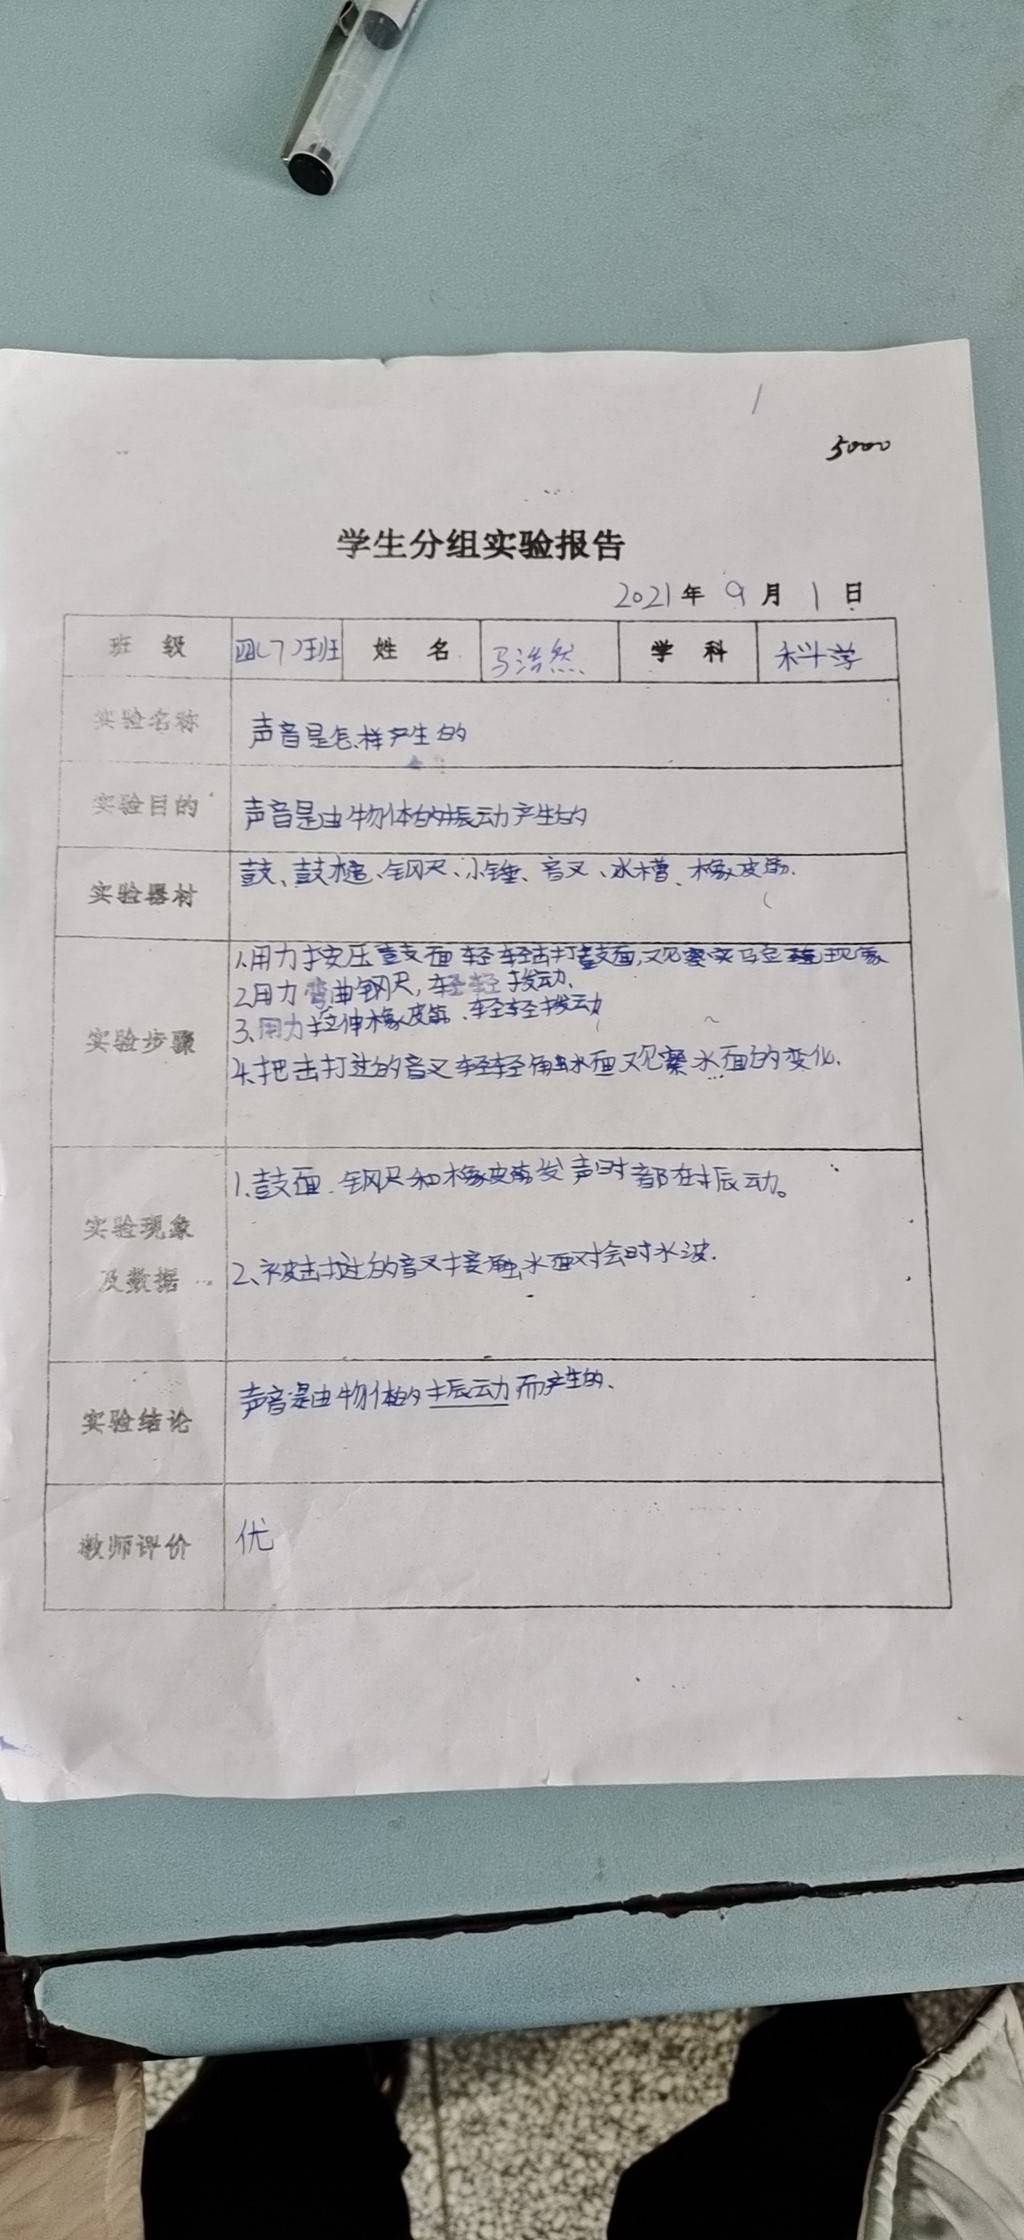 5000
学生分组实验报告
2021年9月1日
班 级 四(7)班 姓 名 马浩然 学 科 科学
实验名称 声音是怎样产生的
实验目的 声音是由物体的振动产生的
实验器材 鼓、鼓槌、钢尺、小锤、音叉、水槽、橡皮筋.
实验步骤
1.用力按压鼓面轻轻击打鼓面,观察实验现象
2.用力弯曲钢尺,轻轻拨动.
3.用力拉伸橡皮筋.轻轻拨动
4.把击打过的音叉轻轻触水面观察水面的变化.
实验现象
及数据
1.鼓面.钢尺和橡皮筋发声时都在振动。
2、被击打过的音叉接触水面时会时水波.
实验结论 声音是由物体的振动而产生的、
教师评价 优